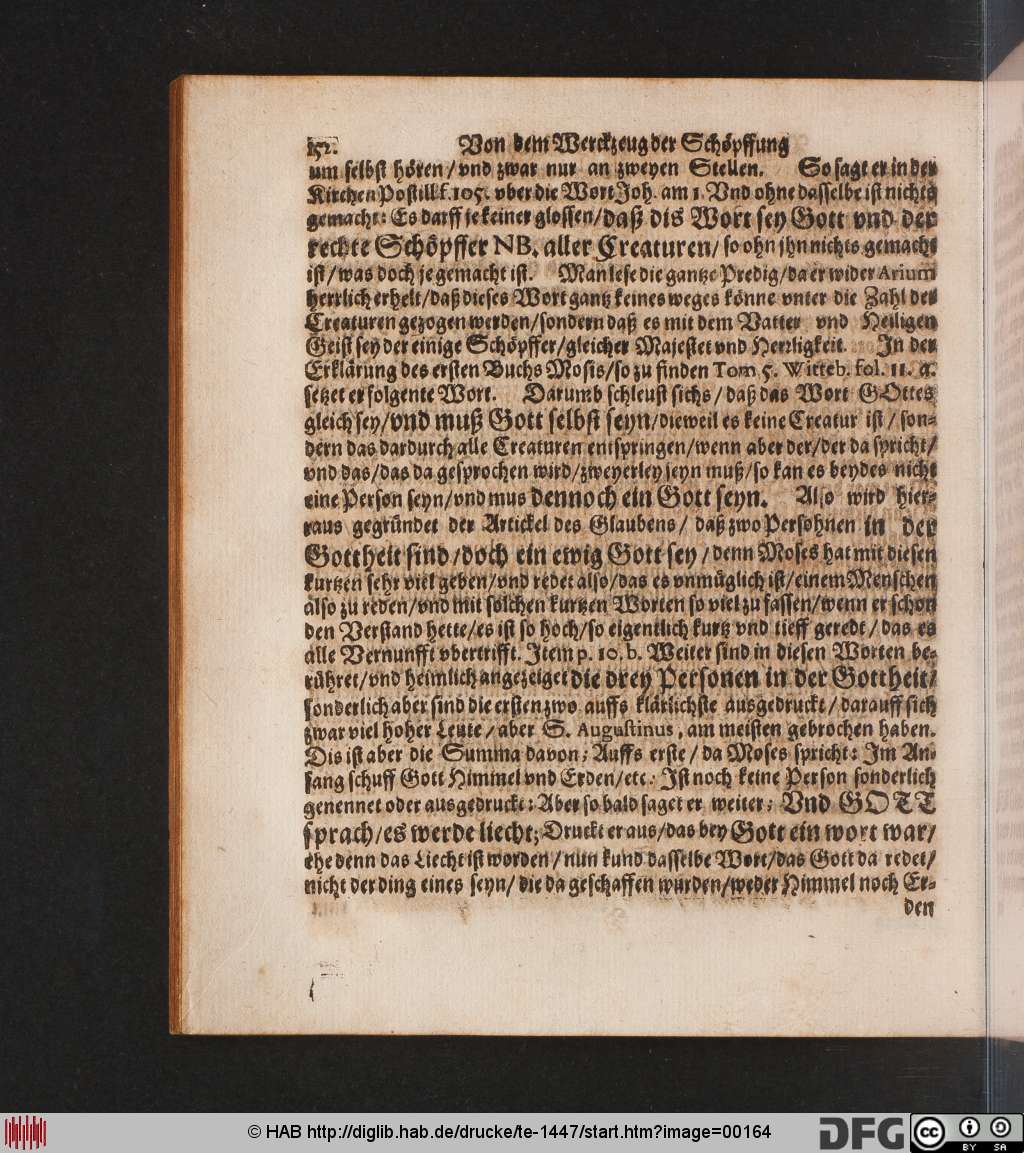 152. Von dem Werckzeug der Schöpffung
um selbst hören/vnd zwar nur an zweyen Stellen. So sagt er in der
KirchenPostill f. 105. vber die Wort Joh. am 1. Vnd ohne dasselbe ist nichts
gemacht: Es darff je keiner glossen/daß dis Wort sey Gott vnd der
rechte Schöpffer NB. aller Creaturen/so ohn jhn nichts gemacht
ist/was doch je gemacht ist. Man lese die gantze Predig/da er wider Arium
herrlich erhelt/daß dieses Wort gantz keines weges könne vnter die Zahl der
Creaturen gezogen werden/sondern daß es mit dem Vatter vnd Heiligen
Geist sey der einige Schöpffer/gleicher Majestet vnd Herrligkeit. In der
Erklärung des ersten Buchs Mosis/so zu finden Tom 5. Witteb. fol. 11. q.
setzet er folgente Wort. Darumb schleust sichs/daß das Wort GOttes
gleich sey/vnd muß Gott selbst seyn/dieweil es keine Creatur ist/son-
dern das dardurch alle Creaturen entspringen/wenn aber der/der da spricht/
vnd das/das da gesprochen wird/zweyerley seyn muß/so kan es beydes nicht
eine Person seyn/vnd mus dennoch ein Gott seyn. Also wird hier-
raus gegründet der Artickel des Glaubens/daß zwo Persohnen in der
Gottheit sind/doch ein ewig Gott sey/denn Moses hat mit diesen
kurtzen sehr viel geben/vnd redet also/das es vnmüglich ist/einem Menschen
also zu reden/vnd mit solchen kurtzen Worten so viel zu fassen/wenn er schon
den Verstand hette/es ist so hoch/so eigentlich kurtz vnd tieff geredt/das es
alle Vernunfft vbertrifft. Item p. 10. b. Weiter sind in diesen Worten be-
rühret/vnd heimlich angezeiget die drey Personen in der Gottheit/
sonderlich aber sind die ersten zwo auffs klärlichste ausgedruckt/darauff sich
zwar viel hoher Leute/aber S. Augustinus, am meisten gebrochen haben.
Dis ist aber die Summa davon; Auffs erste/da Moses spricht: Im An-
fang schuff Gott Himmel vnd Erden/etc. Ist noch keine Person sonderlich
genennet oder ausgedruckt: Aber so bald saget er weiter; Vnd GOTT
sprach/es werde liecht; Druckt er aus/das bey Gott ein wort war/
ehe denn das Liecht ist worden/nun kund dasselbe Wort/das Gott da redet/
nicht der ding eines seyn/die da geschaffen wurden/weder Himmel noch Er-
den
© HAB http://diglib.hab.de/drucke/te-1447/start.htm?image=00164
DFG cc BY SA